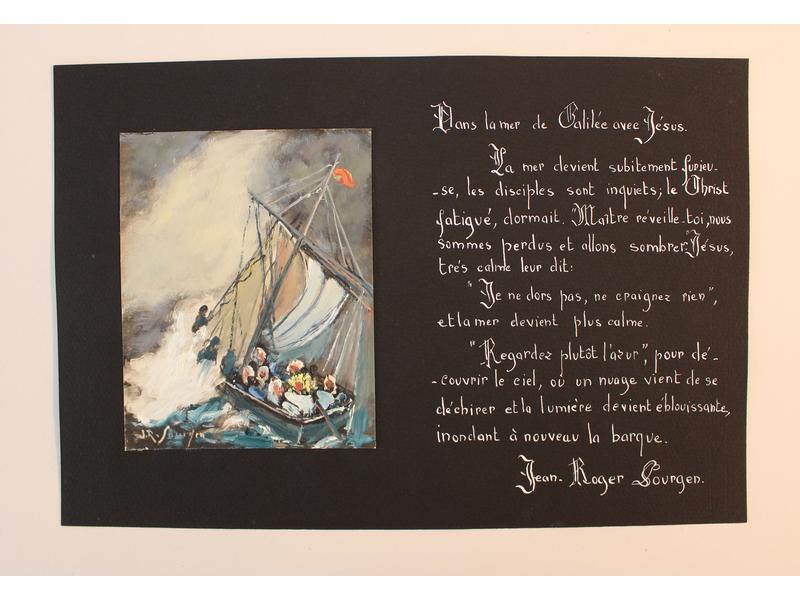 Dans la mer de Galilée avec Jésus.
La mer devient subitement furieu-
-se, les disciples sont inquiets; le Christ
fatigué, dormait. "Maître réveille-toi, nous
sommes perdus et allons sombrer." Jésus,
trés calme leur dit:
"Je ne dors pas, ne craignez rien",
et la mer devient plus calme.
"Regardez plutôt l'azur", pour dé-
-couvrir le ciel, où un nuage vient de se
déchirer et la lumière devient éblouissante,
inondant à nouveau la barque.
Jean-Roger Sourgen.
J.R. Sourgen